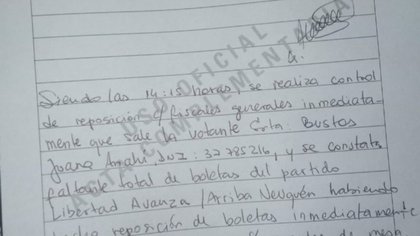 USO OFICIAL
ACTA COMPLEMENTARIA
Siendo las 14:15 horas, se realiza control
de reposición c/ fiscales generales inmediata-
mente que sale la votante Srta. Bustos
Joana Anahi DNI: 32785216, y se constata
faltante total de boletas del partido
Libertad Avanza / Arriba Neuquén habiendo
reposición de boletas inmediatamente